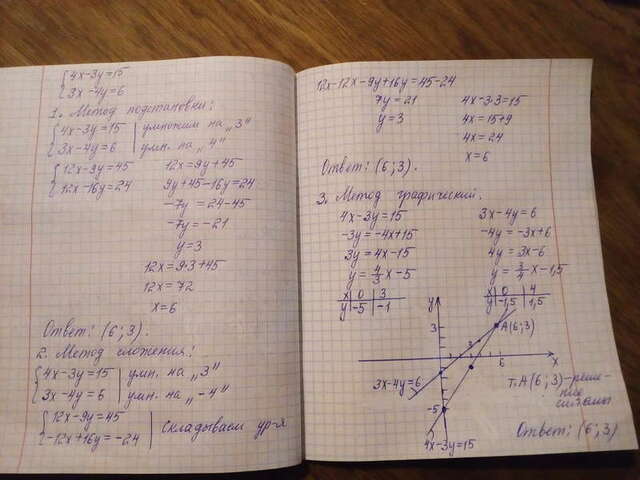 {4x-3y=15
{3x-4y=6
1. Метод подстановки:
{4x-3y=15 | умножим на „3"
{3x-4y=6 | умн. на „4"
{12x-9y=45
{12x-16y=24
12x=9y+45
9y+45-16y=24
-7y=24-45
-7y=-21
y=3
12x=9·3+45
12x=72
x=6
Ответ: (6;3).
2. Метод сложения:
{4x-3y=15 | умн. на „3"
{3x-4y=6 | умн. на „-4"
{12x-9y=45
{-12x+16y=-24
| Складываем ур-я
12x-12x-9y+16y=45-24
7y=21
y=3
4x-3·3=15
4x=15+9
4x=24
x=6
Ответ: (6;3).
3. Метод графический.
4x-3y=15
-3y=-4x+15
3y=4x-15
y=4/3x-5
x|0|3
y|-5|-1
3x-4y=6
-4y=-3x+6
4y=3x-6
y=3/4x-1,5
x|0|4
y|-1,5|1,5
y
3
A(6;3)
6
x
3x-4y=6
-5
4x-3y=15
т.A(6;3)-реше-
ние
системы
Ответ: (6;3)